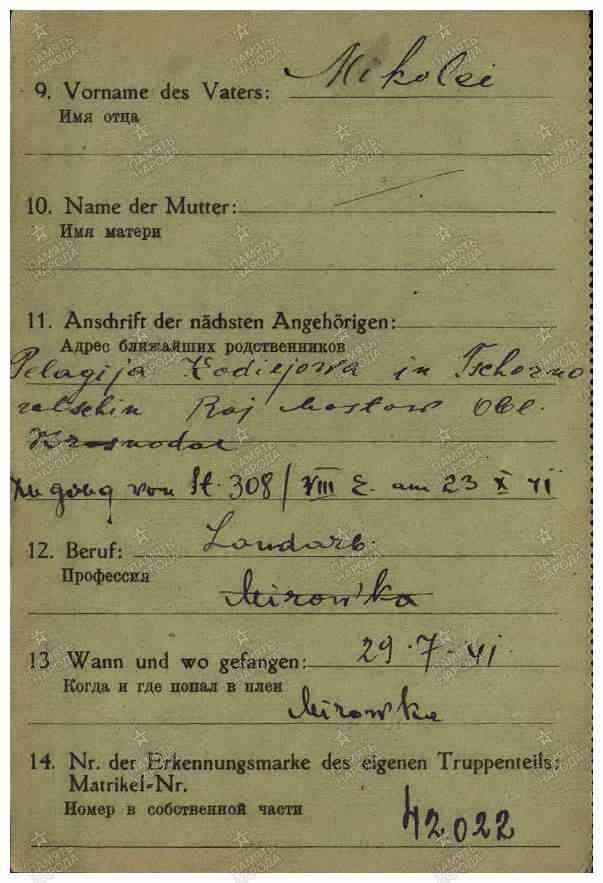 9. Vorname des Vaters: Mikolei
Имя отца
10. Name der Mutter:
Имя матери
11. Anschrift der nächsten Angehörigen:
Адрес ближайших родственников
Pelagija in Tschorno
retschin Raj Mostow Obl.
Krasnodar
Zugang von St. 308/VIII E. am 23 X 41
12. Beruf: Landarb.
Профессия
Mirowka
13 Wann und wo gefangen: 29.7.41.
Когда и где попал в плен
Mirowka
14. Nr. der Erkennungsmarke des eigenen Truppenteils:
Matrikel-Nr.
Номер в собственной части
42022
ПАМЯТЬ НАРОДА